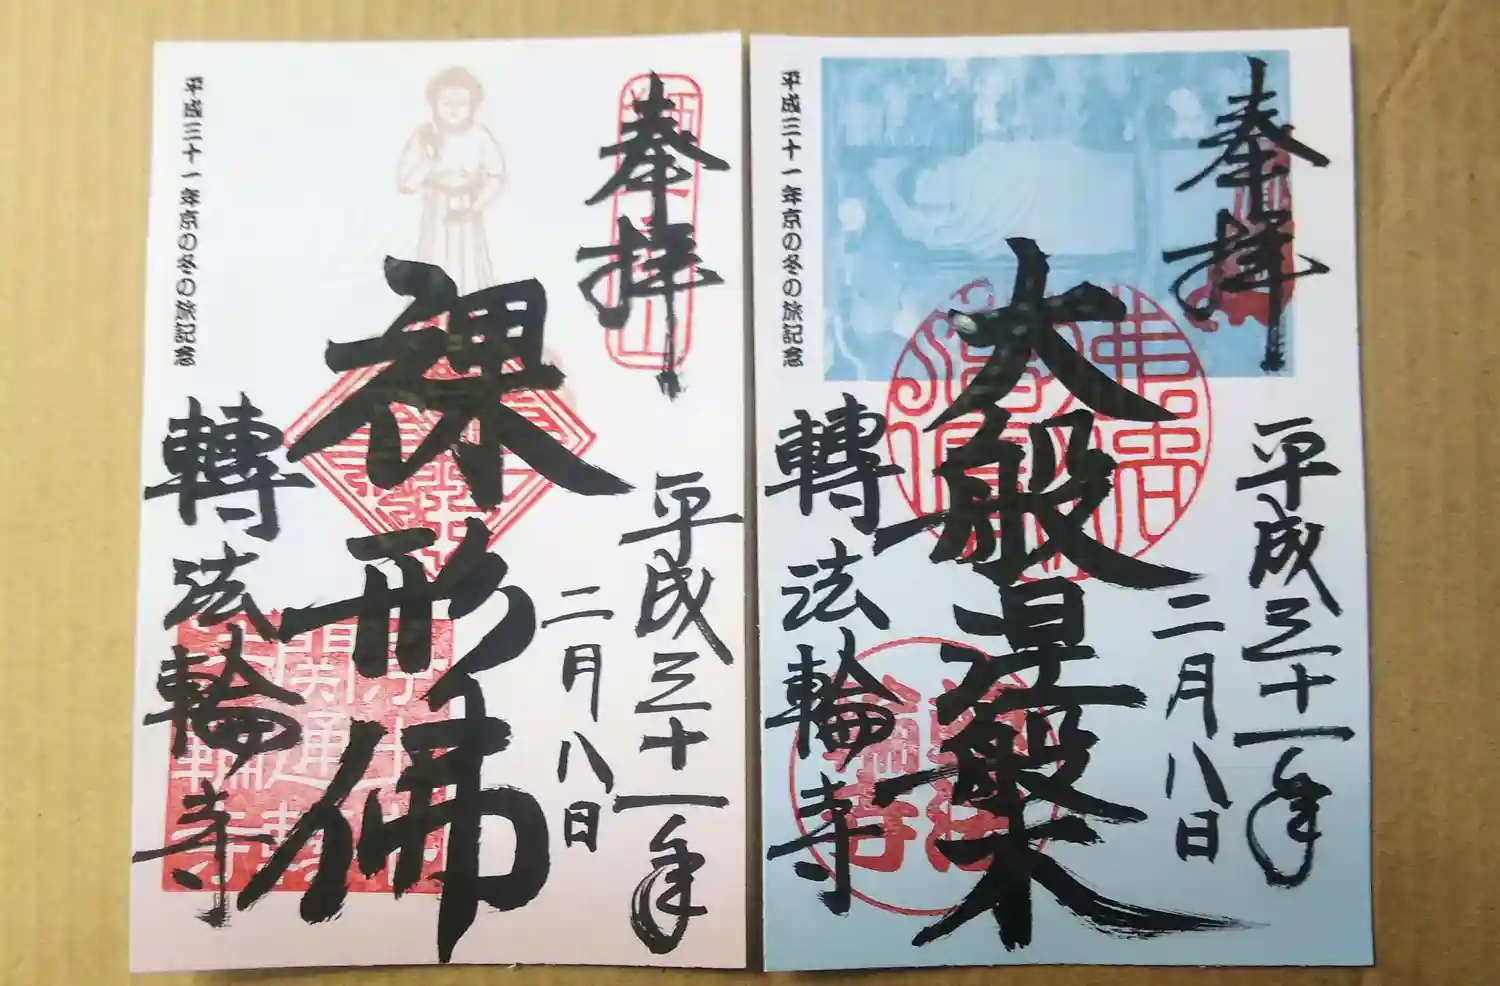 奉拝
平成三十一年
二月八日
裸形佛
轉法輪寺
平成三十一年京の冬の旅記念
奉拝
平成三十一年
二月八日
大般涅槃
轉法輪寺
平成三十一年京の冬の旅記念